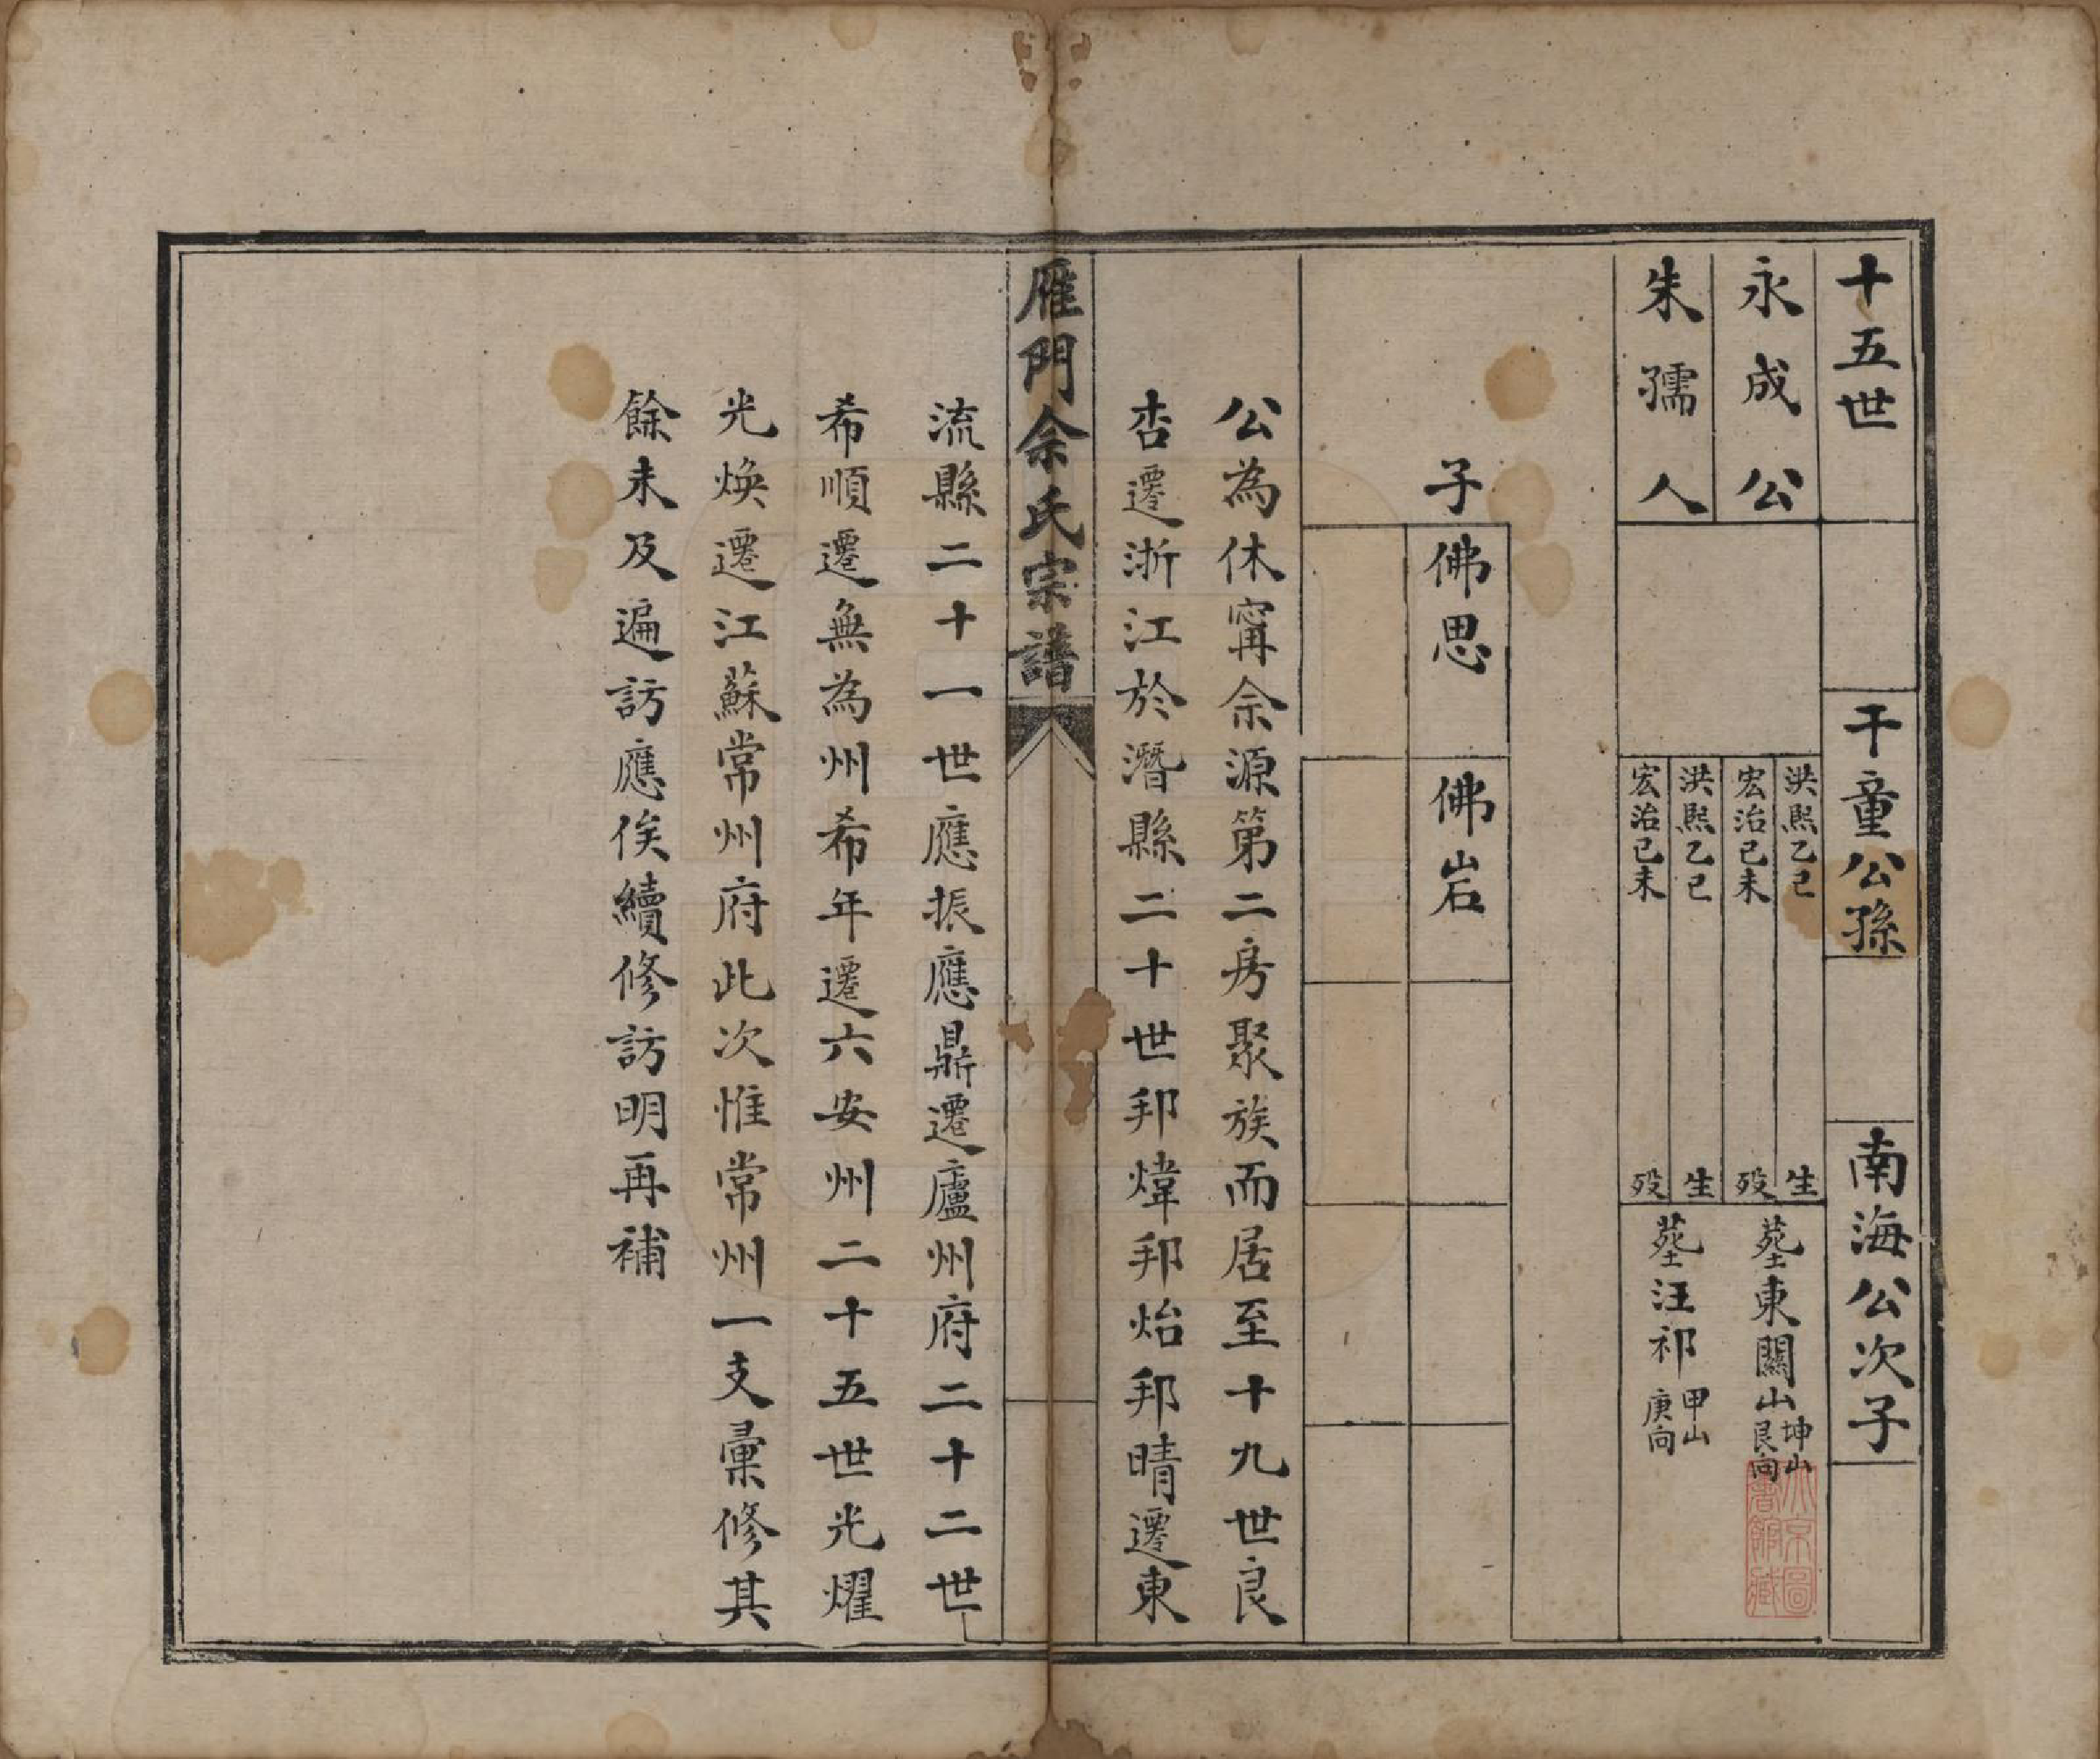 十五世　干童公孫　南海公次子
永成公　洪熙乙巳生　宏治己未歿　塟東關山坤山艮向
朱孺人　洪熙乙巳生　宏治己未歿　塟汪祁甲山庚向
子　佛思　佛岩
公為休甯佘源第二房聚族而居至十九世良
杏遷浙江於潛縣二十世邦煒邦炲邦晴遷東
雁門佘氏宗譜
流縣二十一世應振應鼎遷廬州府二十二世
希順遷無為州希年遷六安州二十五世光耀
光煥遷江蘇常州府此次惟常州一支彙修其
餘未及遍訪應俟續修訪明再補
北京圖書館藏